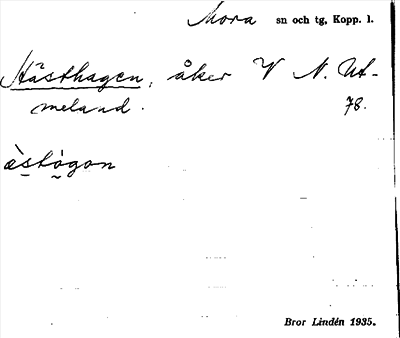 Mora sn och tg, Kopp. l.
Hästhagen, åker V N. Ut-
meland. 78.
ὰstὰgon
Bror Lindén 1935.